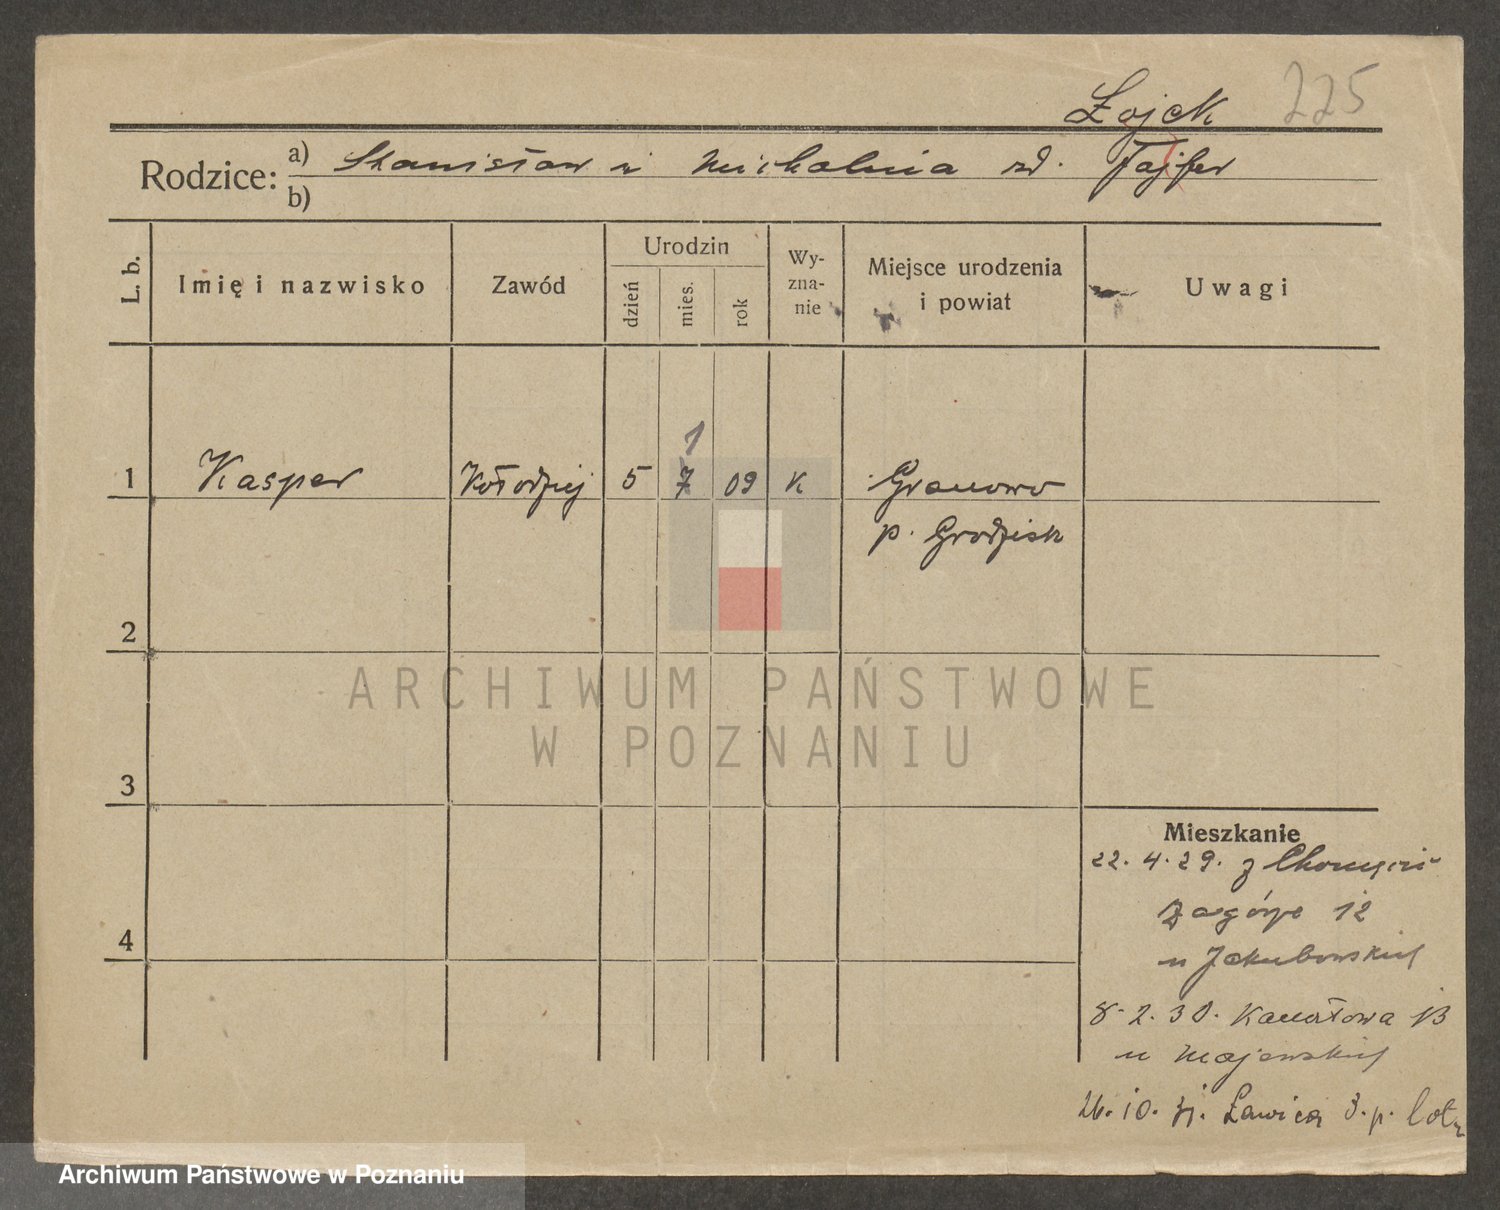 Łojek 225
Rodzice: a) Stanisław u Michalina zd. Fajfer
b)
L. b.
Imię i nazwisko
Zawód
Urodzin
dzień
mies.
rok
Wy-
zna-
nie
Miejsce urodzenia
i powiat
Uwagi
1
1 Kasper Kołodziej 5 7 09 K Granowo
p. Grodzisk
2
3
4
ARCHIWUM PAŃSTWOWE
W POZNANIU
Mieszkanie
22. 4. 29. z
Zagórze 12
u Jakubowskiej
8. 2. 30. Kanałowa 13
u Majewskiej
26. 10. 31. Ławica 3. p. lotn
Archiwum Państwowe w Poznaniu